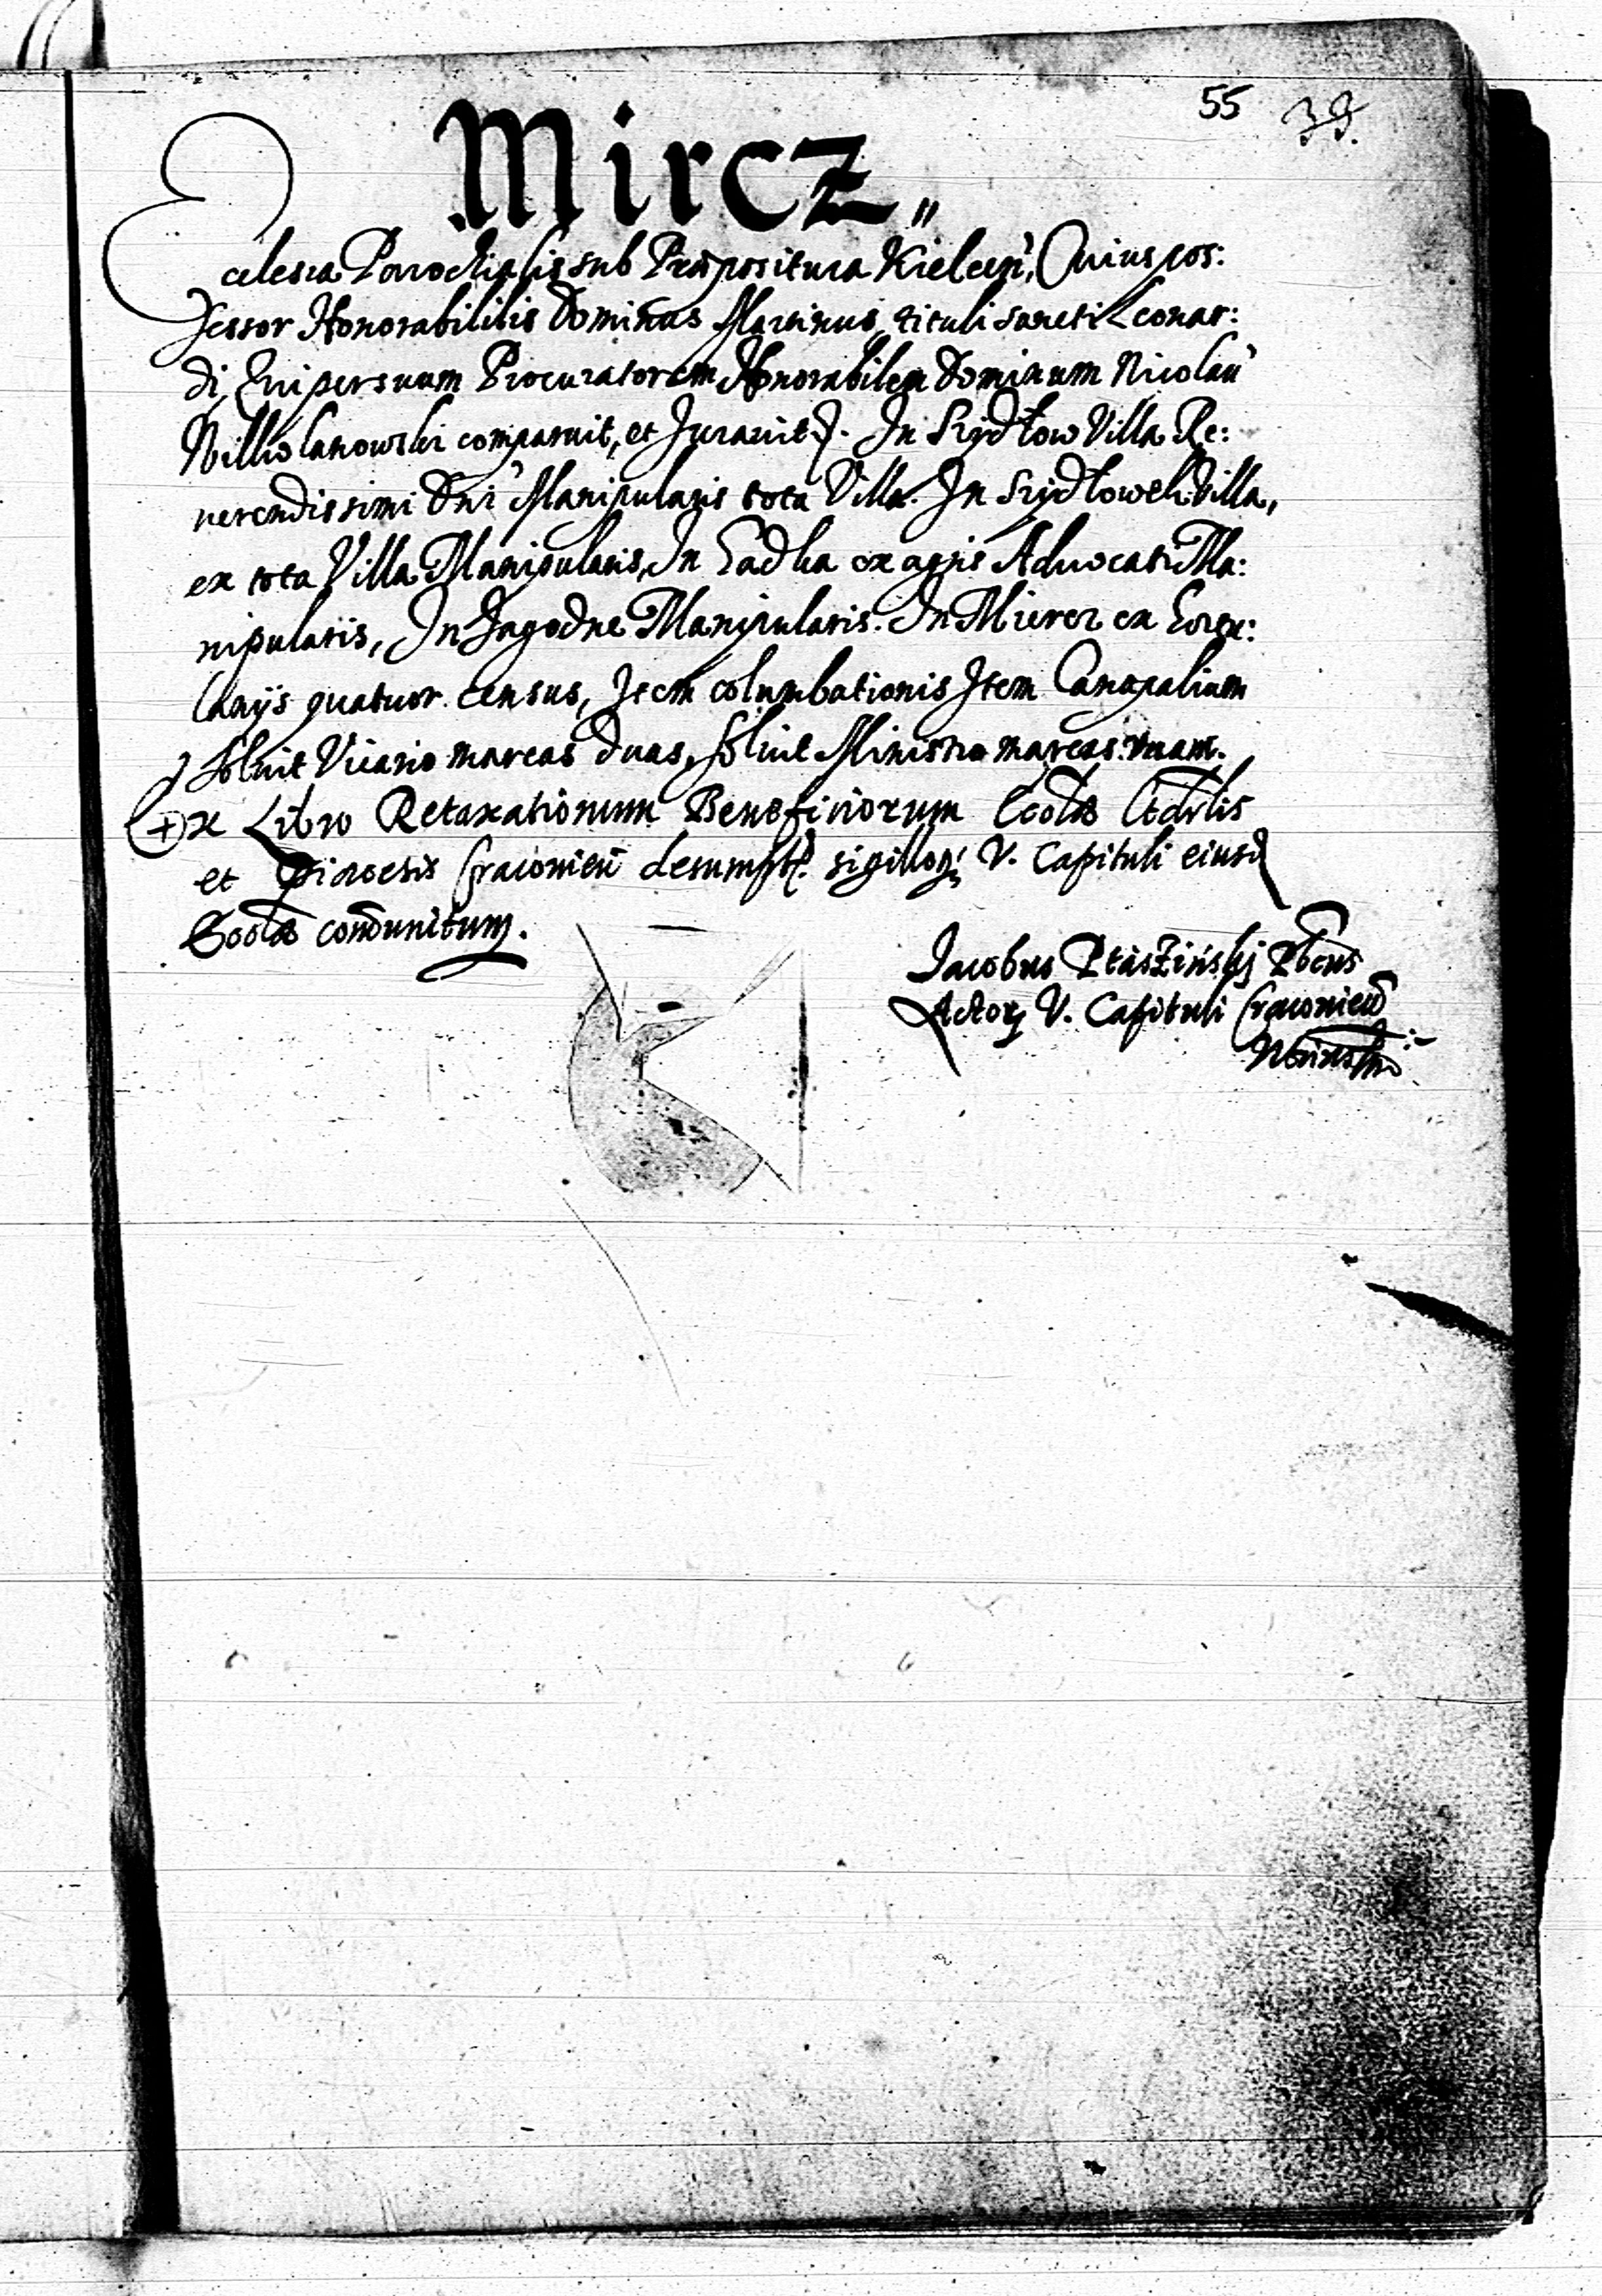 55 39.
Mircz„
Ecclesia Parochialis sub Præpositura Kielcen̄, Cuius pos:
sessor Honorabililis Dominus Martinus, tituli Sancti Leonar:
di, Qui per suum Procuratorem Honorabilem Dominum Nicolaū
comparuit, et Juravit. In Szydłow Villa Re:
verendissimi Dn̄i Manipularis tota Villa. In Szydłowek Villa,
ex tota Villa Manipularis, In ex agris Advocati Ma:
nipularis, In Jagodne Manipularis. In Mircz ex
quatuor census, Item columbationis Item Canapalium
Solvit Vicario marcas duas, Solvit Ministro marcas: unam.
Ex Libro Retaxationum Beneficiorum Eccl̄æ Cathd̄rlis
et Diœcesis Cracovien̄ desumpt. sigilloq; V. Capituli eiusd̄
Eccl̄æ com̄unitum.
Jacobus Ptasziński
Actorȝ V. Capituli Cracovien̄